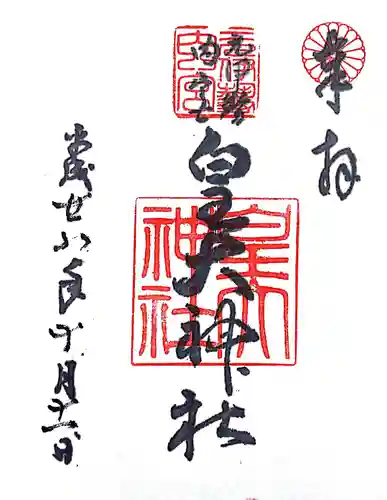 奉拝
元伊勢
内宮
皇大神社
平成廿八年十月十一日
皇大
神社